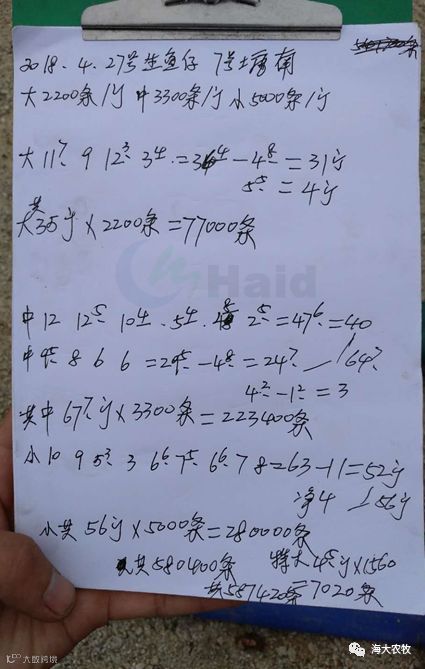 2018.4.27号生鱼仔 7号土塘南
大2200条/斤 中3300条/斤 小5000条/斤
大11⁷. 9 12³. 3⁴. = 36⁴ - 4⁸ = 31斤
5⁵ = 4斤
共
大35斤×2200条=77000条
Haid
中12 12⁵ 10⁴. 5⁴. 2⁵=47⁶=40
中9⁵ 8 6 6 =29⁵-4⁸=24⁷ 64⁷
4²-1²=3
共中67⁷斤×3300条=223400条
小10 9 5³ 3 6⁶ 7⁵ 6⁶ 7 8=63-11=52斤
净4 56斤
小共56斤×5000条=280000条
共580400条 特大4⁵斤×1560
共587420条 =7020条
大数跨境
海大农牧